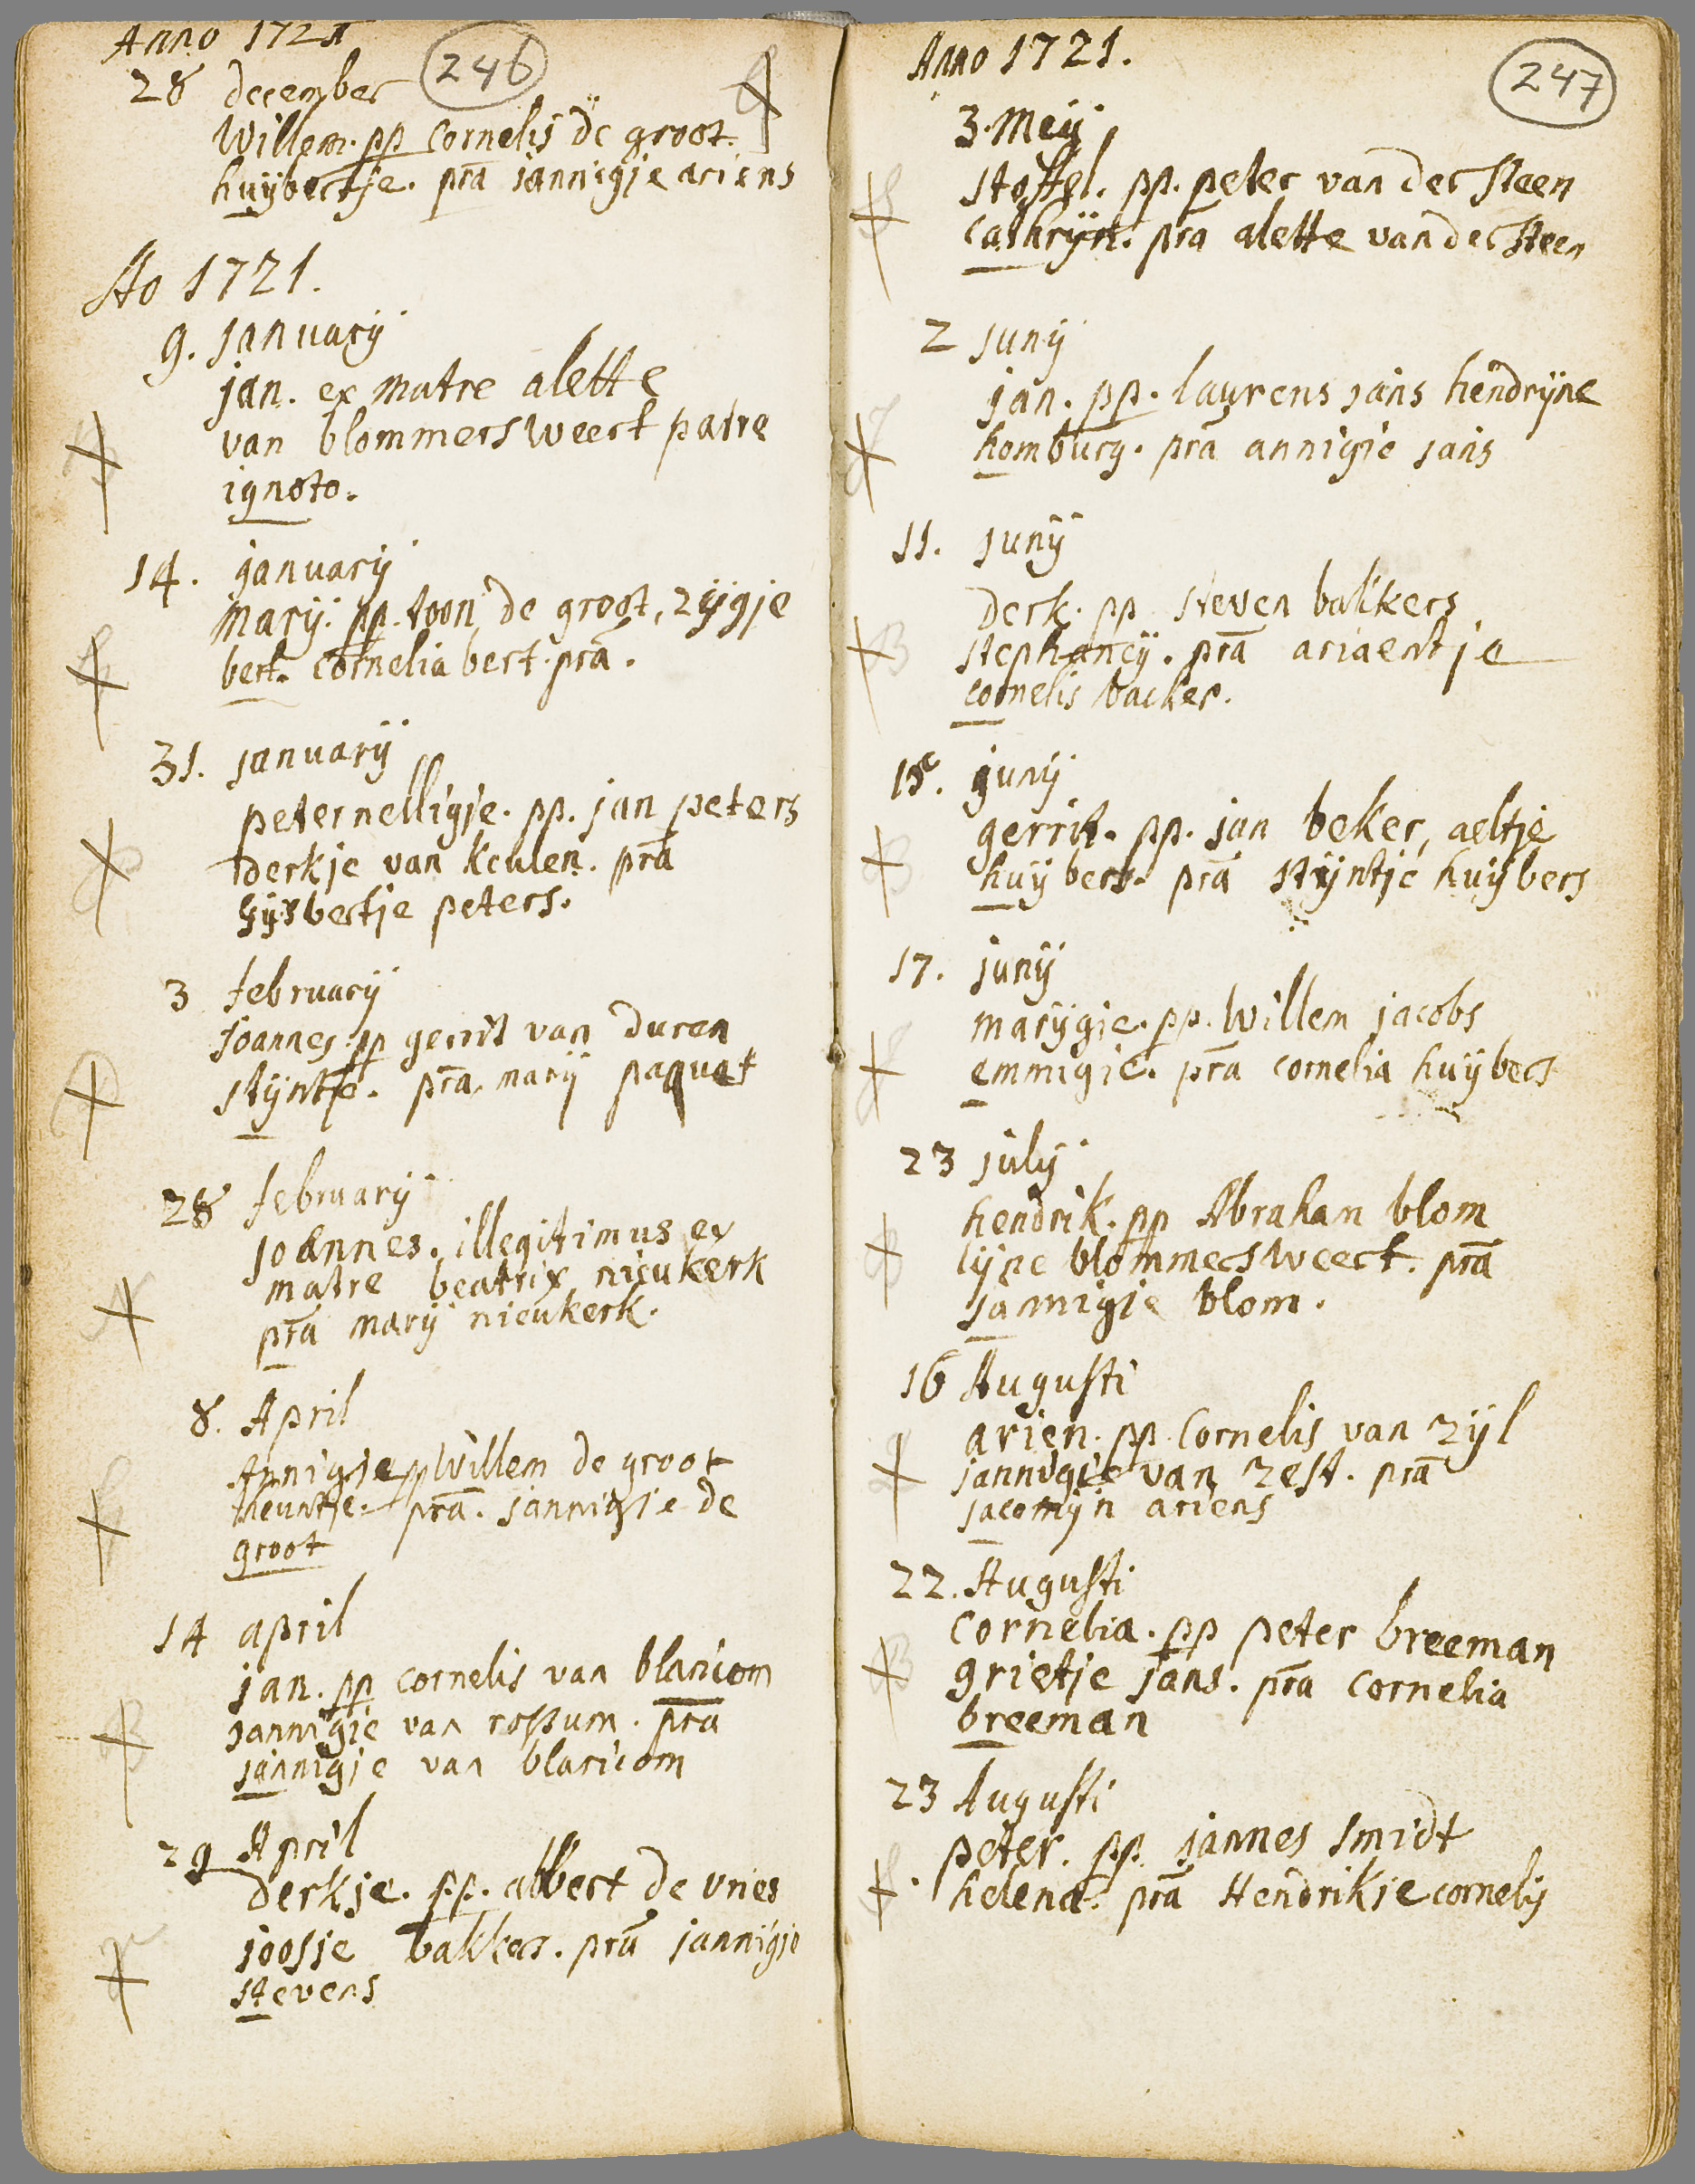 Anno 1721
246
28 december
Willem. pp cornelis de groot.
huijbertje. pra jannigje ariens
Ao 1721.
9. januarij
jan. ex matre alette
van blommersweert patre
ignoto.
14. januarij
marij. pp. toon de groot, zijgje
bert. cornelia bert. pra.
31. januarij
peternelligje. pp. jan peters
derkje van keulen. pra
gijsbertje peters.
3 februarij
joannes. pp gerrit van duren
stijntje. pra. marij paquet
28 februarij
joannes. illegitimus ex
matre beatrix nieukerk
pra marij nieukerk.
8. April
Annigje pp Willem de groot
theuntje. pra. jannigje de
groot
14 april
jan. pp cornelis van blaricom
jannigie van rossum. pra
jannigje van blaricom
29 April
derkje. pp. albert de vries
joosje bakker. pra jannigje
stevens
Anno 1721.
247
3. Meij
stoffel. pp. peter van der steen
cathrijn. pra alette van der steen
2 junij
jan. pp. laurens jans hendrijne
homburg. pra annigie jans
11. junij
derk. pp steven bakkers
stephaneij. pra ariaentje
cornelis backer.
15. junij
gerrit. pp. jan beker, aeltje
huijbers. pra stijntje huijbers
17. junij
marijgie. pp. Willem jacobs
emmigie. pra cornelia huijbers
23 julij
hendrik. pp Abraham blom
lijne blommersweert. pra
jannigje blom.
16 Augusti
arien. pp. Cornelis van zijl
jannigie van zest. pra
jacomijn ariens
22. Augusti
cornelia. pp peter breeman
grietje jans. pra cornelia
breeman
23 Augusti
peter. pp jannes smidt
helena. pra Hendrikje cornelis